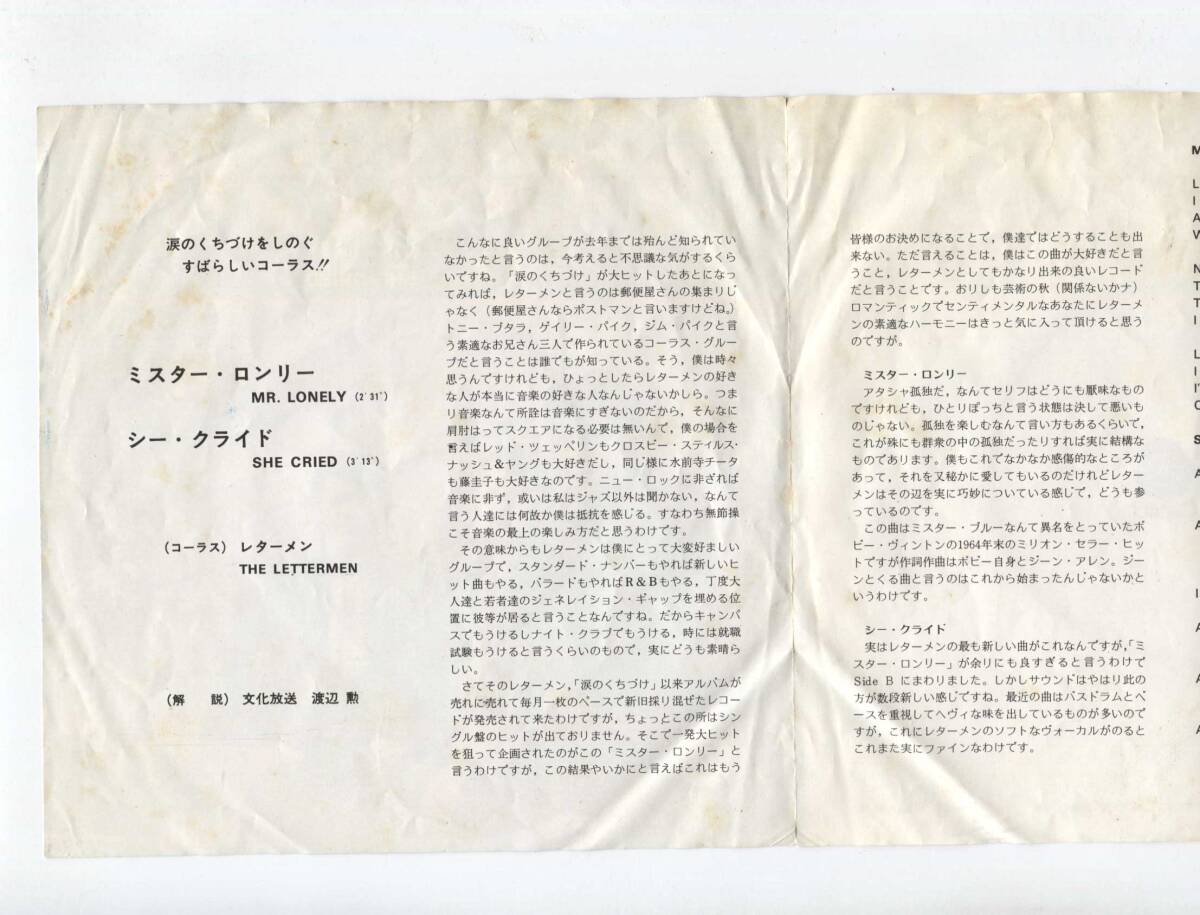 涙のくちづけをしのぐ
すばらしいコーラス!!
ミスター・ロンリー
MR. LONELY (2'31")
シー・クライド
SHE CRIED (3'13")
(コーラス) レターメン
THE LETTERMEN
(解 説) 文化放送 渡辺 勲
こんなに良いグループが去年までは殆んど知られてい
なかったと言うのは，今考えると不思議な気がするくら
いですね。「涙のくちづけ」が大ヒットしたあとになっ
てみれば，レターメンと言うのは郵便屋さんの集まりじ
ゃなく（郵便屋さんならポストマンと言いますけどね。）
トニー・ブタラ，ゲイリー・パイク，ジム・パイクと言
う素適なお兄さん三人で作られているコーラス・グルー
プだと言うことは誰でもが知っている。そう，僕は時々
思うんですけれども，ひょっとしたらレターメンの好き
な人が本当に音楽の好きな人なんじゃないかしら。つま
り音楽なんて所詮は音楽にすぎないのだから，そんなに
肩肘はってスクエアになる必要は無いんで，僕の場合を
言えばレッド・ツェッペリンもクロスビー・スティルス・
ナッシュ&ヤングも大好きだし，同じ様に水前寺チータ
も藤圭子も大好きなのです。ニュー・ロックに非ざれば
音楽に非ず，或いは私はジャズ以外は聞かない，なんて
言う人達には何故か僕は抵抗を感じる。すなわち無節操
こそ音楽の最上の楽しみ方だと思うわけです。
その意味からもレターメンは僕にとって大変好ましい
グループで，スタンダード・ナンバーもやれば新しいヒ
ット曲もやる，バラードもやればR&Bもやる，丁度大
人達と若者達のジェネレイション・ギャップを埋める位
置に彼等が居ると言うことなんですね。だからキャンパ
スでもうけるしナイト・クラブでもうける，時には就職
試験もうけると言うくらいのもので，実にどうも素晴ら
しい。
さてそのレターメン，「涙のくちづけ」以来アルバムが
売れに売れて毎月一枚のペースで新旧採り混ぜたレコー
ドが発売されて来たわけですが，ちょっとこの所はシン
グル盤のヒットが出ておりません。そこで一発大ヒット
を狙って企画されたのがこの「ミスター・ロンリー」と
言うわけですが，この結果やいかにと言えばこれはもう
皆様のお決めになることで，僕達ではどうすることも出
来ない。ただ言えることは，僕はこの曲が大好きだと言
うこと，レターメンとしてもかなり出来の良いレコード
だと言うことです。おりしも芸術の秋（関係ないかナ）
ロマンティックでセンティメンタルなあなたにレターメ
ンの素適なハーモニーはきっと気に入って頂けると思う
のですが。
ミスター・ロンリー
アタシャ孤独だ，なんてセリフはどうにも厭味なもの
ですけれども，ひとりぼっちと言う状態は決して悪いも
のじゃない。孤独を楽しむなんて言い方もあるくらいで，
これが殊にも群衆の中の孤独だったりすれば実に結構な
ものであります。僕もこれでなかなか感傷的なところが
あって，それを又秘かに愛してもいるのだけれどレター
メンはその辺を実に巧妙についている感じで，どうも参
っているのです。
この曲はミスター・ブルーなんて異名をとっていたボ
ビー・ヴィントンの1964年末のミリオン・セラー・ヒッ
トですが作詞作曲はボビー自身とジーン・アレン。ジー
ンとくる曲と言うのはこれから始まったんじゃないかと
いうわけです。
シー・クライド
実はレターメンの最も新しい曲がこれなんですが，「ミ
スター・ロンリー」が余りにも良すぎると言うわけで
Side B にまわりました。しかしサウンドはやはり此の
方が数段新しい感じですね。最近の曲はバスドラムとベ
ースを重視してヘヴィな味を出しているものが多いので
すが，これにレターメンのソフトなヴォーカルがのると
これまた実にファインなわけです。
M
L
I
A
W
N
T
T
I
L
I
I'
C
S
A
A
I
A
A
A